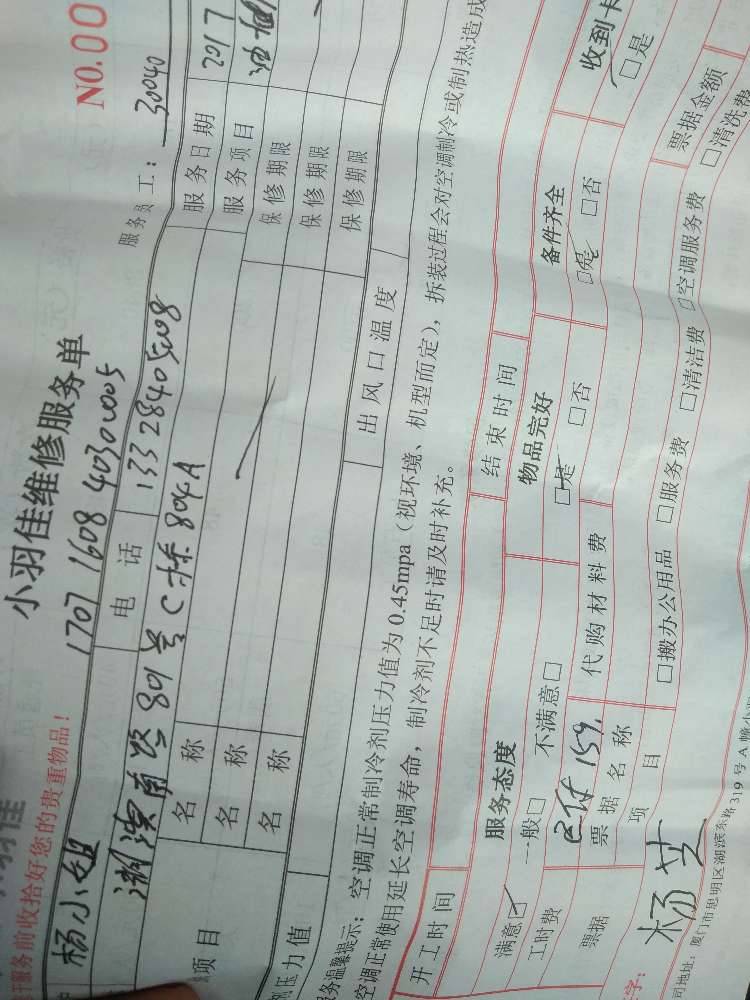 NO.00
小羽佳维修服务单
服务前收拾好您的贵重物品！
1707 1608 403000005
服务员工：30040
杨小姐 电话 13328405008 服务日期 2017
湖滨南路 801号C栋804A 服务项目
项目 名称 保修期限
名称 保修期限
名称 保修期限
压力值 出风口温度
服务温馨提示：空调正常制冷剂压力值为0.45mpa（视环境、机型而定），拆装过程会对空调制冷或制热造成
空调正常使用延长空调寿命，制冷剂不足时请及时补充。
开工时间 结束时间
服务态度 物品完好 备件齐全 收到卡
满意☑ 一般□ 不满意□ □是 □否 □是 □否 □是
工时费 已付159. 代购材料费
票据 票据名称 票据金额
项目 □搬办公用品 □服务费 □清洁费 □空调服务费 □清洗费
字： 杨芝
司地址：厦门市思明区湖滨东路319号A幢